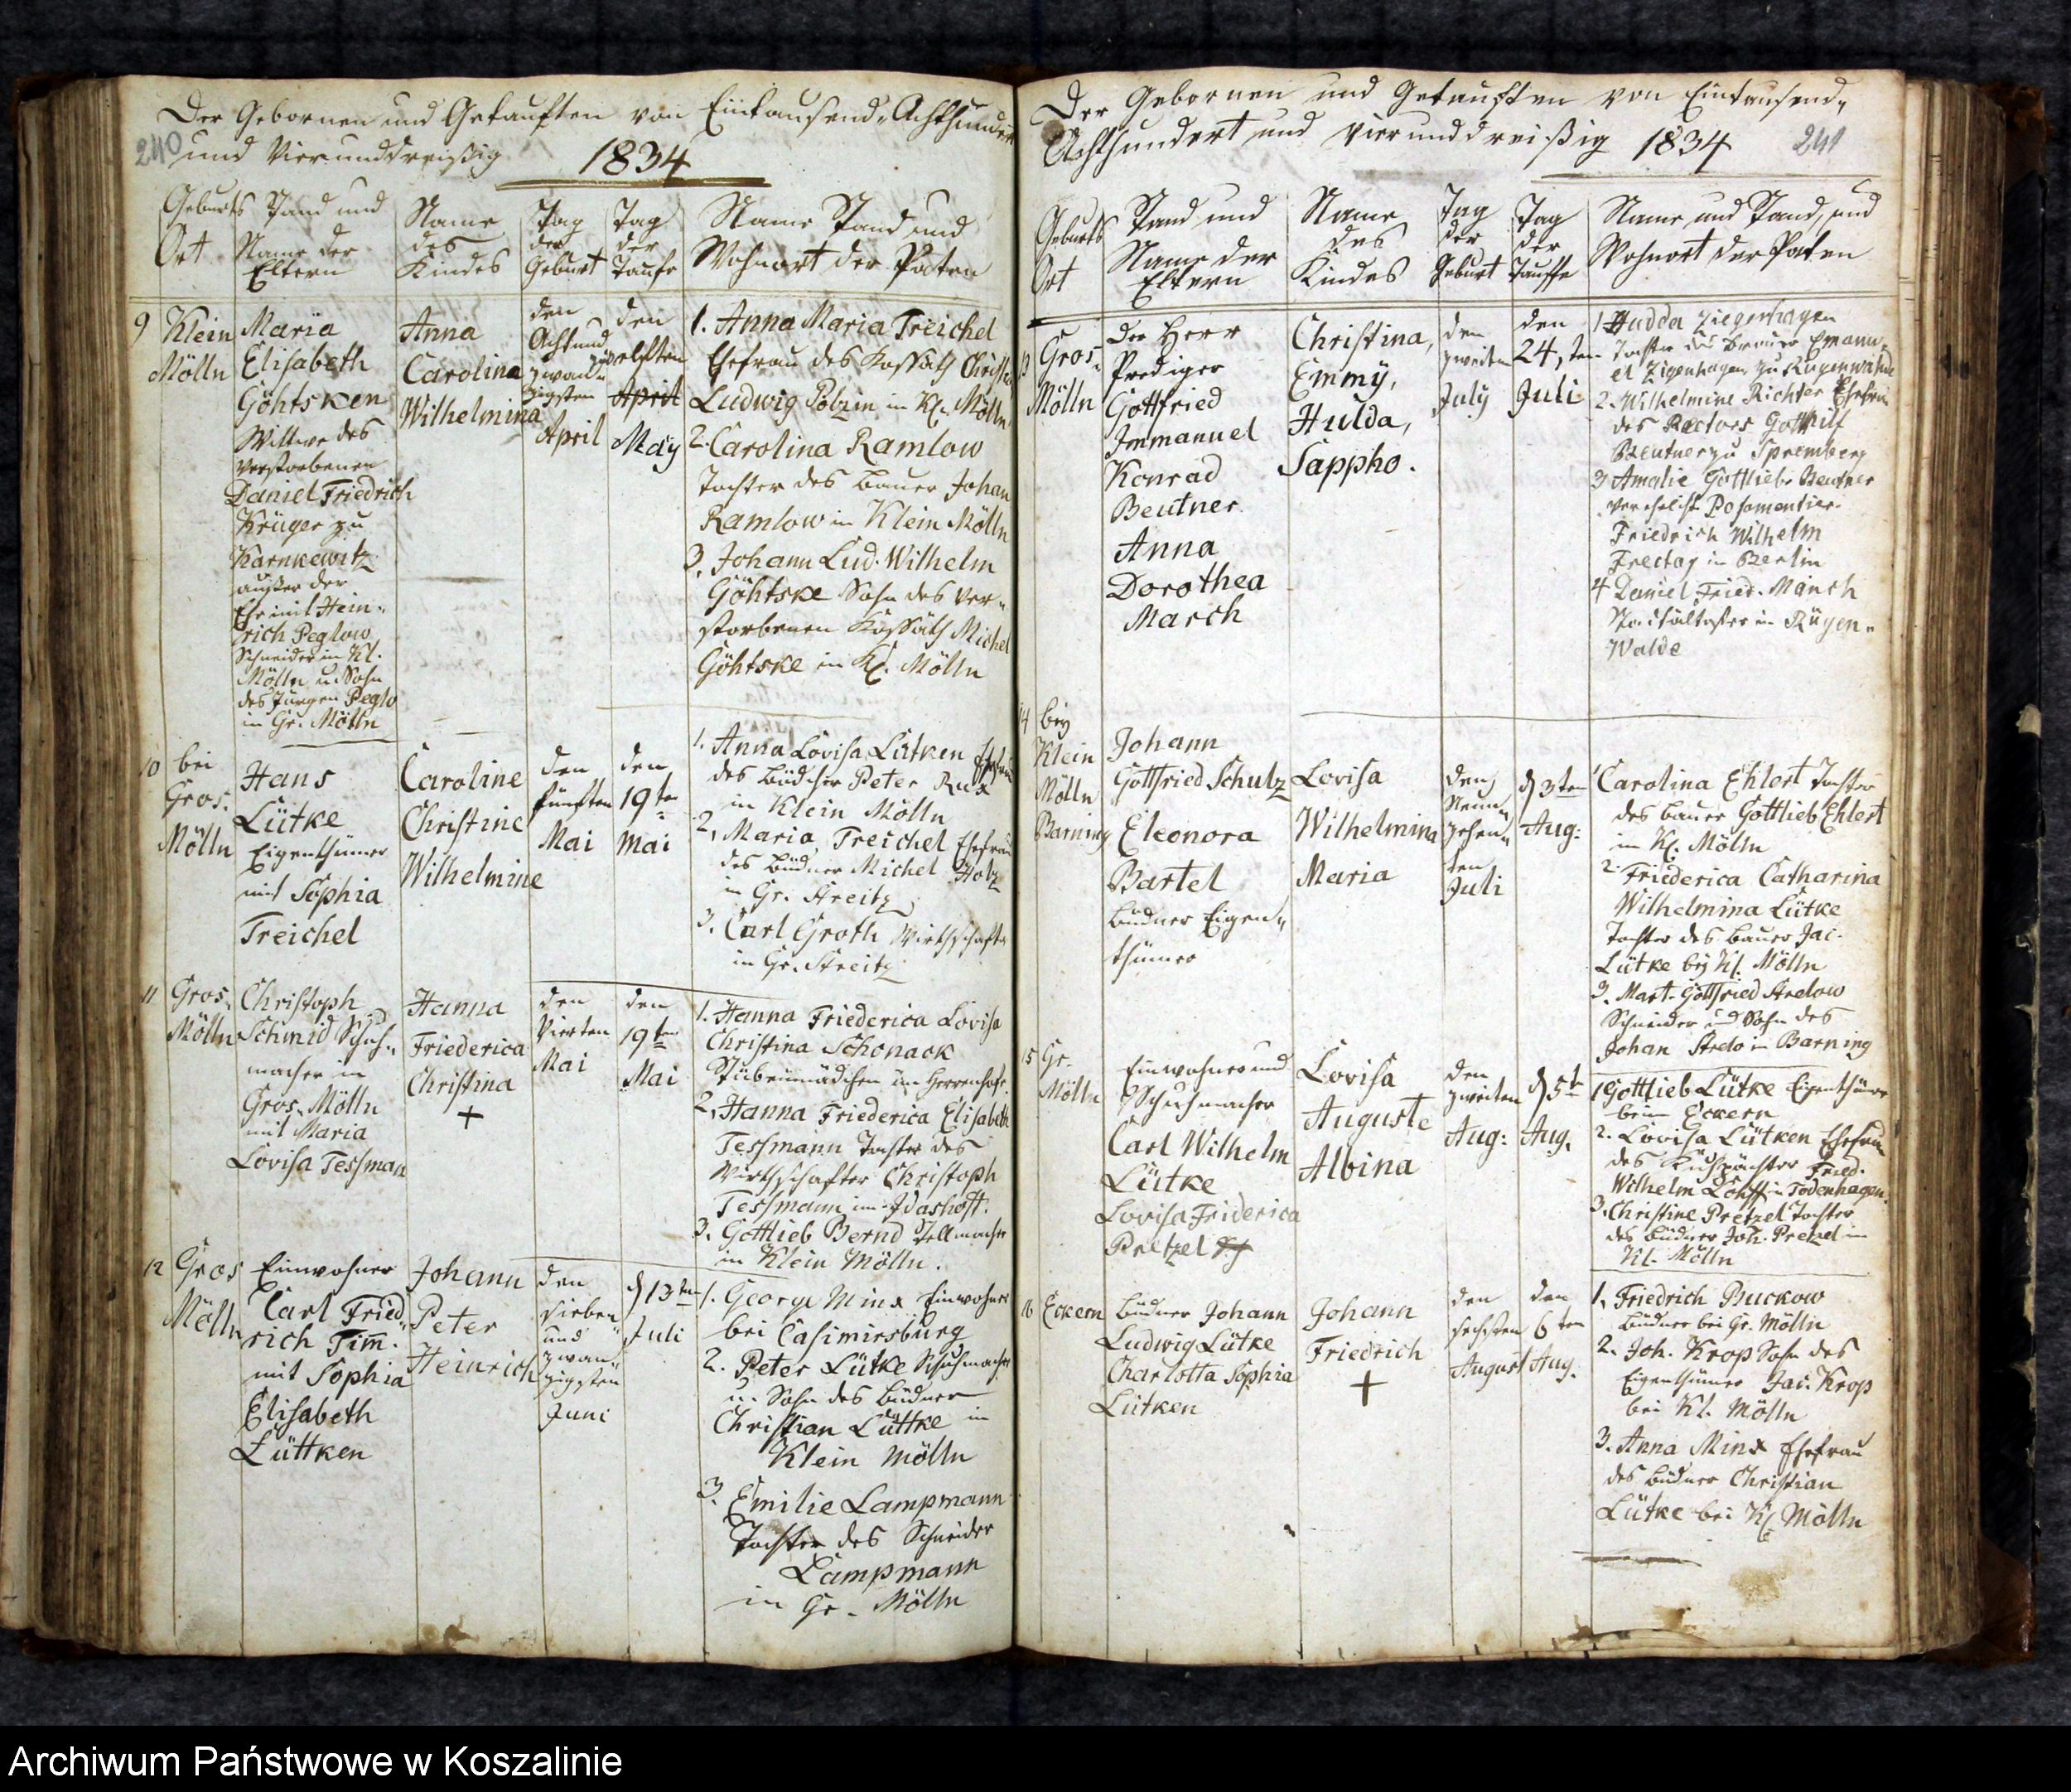 Der Gebornen und Getauften von Eintausend, Achthundert
240 und Vierunddreißig 1834
Geburts Ort
Stand und Name der Eltern
Name des Kindes
Tag der Geburt
Tag der Taufe
Name Stand und Wohnort der Paten
9
Klein
Mölln
Maria
Elisabeth
Göhtsken
Wittwe des
verstorbenen
Daniel Friedrich
Krüger zu
Karnkewitz
außer der
Ehe mit Hein-
rich Peglow
Schneider in Kl.
Mölln u. Sohn
des Jürgen Peglo
in Gr. Mölln
Anna
Carolina
Wilhelmina
den
Acht und
zwan-
zigsten
April
den
zwölften
April
May
1. Anna Maria Treichel
Ehefrau des Kossäth Christ
Ludwig Polzin in Kl. Mölln
2. Carolina Ramlow
Tochter des Bauer Johan
Ramlow in Klein Mölln
3. Johann Lud. Wilhelm
Göhtske Sohn des ver-
storbenen Kossäth Michel
Göhtske in Kl. Mölln
10
bei
Gros
Mölln
Hans
Lütke
Eigenthümer
mit Sophia
Treichel
Caroline
Christine
Wilhelmine
den
fünften
Mai
den
19ten
Mai
1. Anna Lovisa Lütken Ehefrau
des Büdner Peter
in Klein Mölln
2, Maria Treichel Ehefrau
des Büdner Michel Holz
in Gr. Streitz
3. Carl Groth Wirthschafter
in Gr. Streitz
11
Gros-
Mölln
Christoph
Schmid Schuh-
macher in
Gros-Mölln
mit Maria
Lovisa Tessman
Hanna
Friederica
Christina
+
den
Vierten
Mai
den
19ten
Mai
1. Hanna Friederica Lovisa
Christina Schonack
Stubenmädchen im Herrenhofe
2, Hanna Friederica Elisabeth
Tessmann Tochter des
Wirthschafter Christoph
Tessmann im Idashoff.
3. Gottlieb Bernd Stellmacher
in Klein Mölln.
12
Gros
Mölln
Einwohner
Carl Fried
rich Tim̄.
mit Sophia
Elisabeth
Lüttken
Johann
Peter
Heinrich
den
sieben
und
zwan-
zigsten
Juni
d 13ten
Juli
1. George Minx Einwohner
bei Casimirsburg
2. Peter Lütke Schuhmacher
u. Sohn des Büdner
Christian Lüttke in
Klein Mölln
3. Emilie Lampmann
Tochter des Schneider
Lampmann
in Gr. Mölln
Der Gebornen und Getauften von Eintausend,
Achthundert und Vierunddreißig 1834 241
Geburts Ort
Stand und Name der Eltern
Name des Kindes
Tag der Geburt
Tag der Tauffe
Name und Stand, und Wohnort der Paten
13
Gros-
Mölln
Der Herr
Prediger
Gottfried
Immanuel
Konrad
Beutner.
Anna
Dorothea
March
Christina,
Emmy,
Hulda,
Sappho.
den
zweiten
July
den
24,ten
Juli
1 Hudda Ziegenhagen
Tochter des Brauer Emanu-
el Zigenhagen zu Rügenwalde
2. Wilhelmine Richter Ehefrau
des Rectors Gotthilf
Beutner zu Spremberg
3 Amalie Gottliebe Beutner
verehelicht Posamentier
Friedrich Wilhelm
Freitag in Berlin
4 Daniel Fried. Mänch
in Rügen-
Walde
14
bey
Klein
Mölln
Barning
Johann
Gottfried Schulz
Eleonora
Bartel
Büdner Eigen-
thümer
Lovisa
Wilhelmina
Maria
den
Neun-
zehen-
ten
Juli
d 3ten
Aug:
1 Carolina Ehlert Tochter
des Bauer Gottlieb Ehlert
in Kl. Mölln
2. Friederica Catharina
Wilhelmina Lütke
Tochter des Bauer Jac.
Lütke bey Kl. Mölln
3. Mart. Gottfried Strelow
Schneider und Sohn des
Johan Strelo in Barning
15
Gr.
Mölln
Einwohner und
Schuhmacher
Carl Wilhelm
Lütke
Lovisa Friderica
Pretzel
Lovisa
Auguste
Albina
den
zweiten
Aug:
d 5t
Aug.
1 Gottlieb Lütke Eigenthümer
beim Eckern
2. Lovisa Lütken Ehefrau
des Kuhpächter Fried.
Wilhelm Lohff in Todenhagen.
3. Christine Pretzel Tochter
des Büdner Joh. Pretzel in
Kl. Mölln
16
Eckern
Büdner Johann
Ludwig Lütke
Charlotta Sophia
Lütken
Johann
Friedrich
+
den
sechsten
August
den
6ten
Aug.
1, Friedrich Buckow
Büdner bei Gr. Mölln
2. Joh. Krop Sohn des
Eigenthümer Jac. Krop
bei Kl. Mölln
3. Anna Minx Ehefrau
des Büdner Christian
Lütke bei Kl Mölln
Archiwum Państwowe w Koszalinie